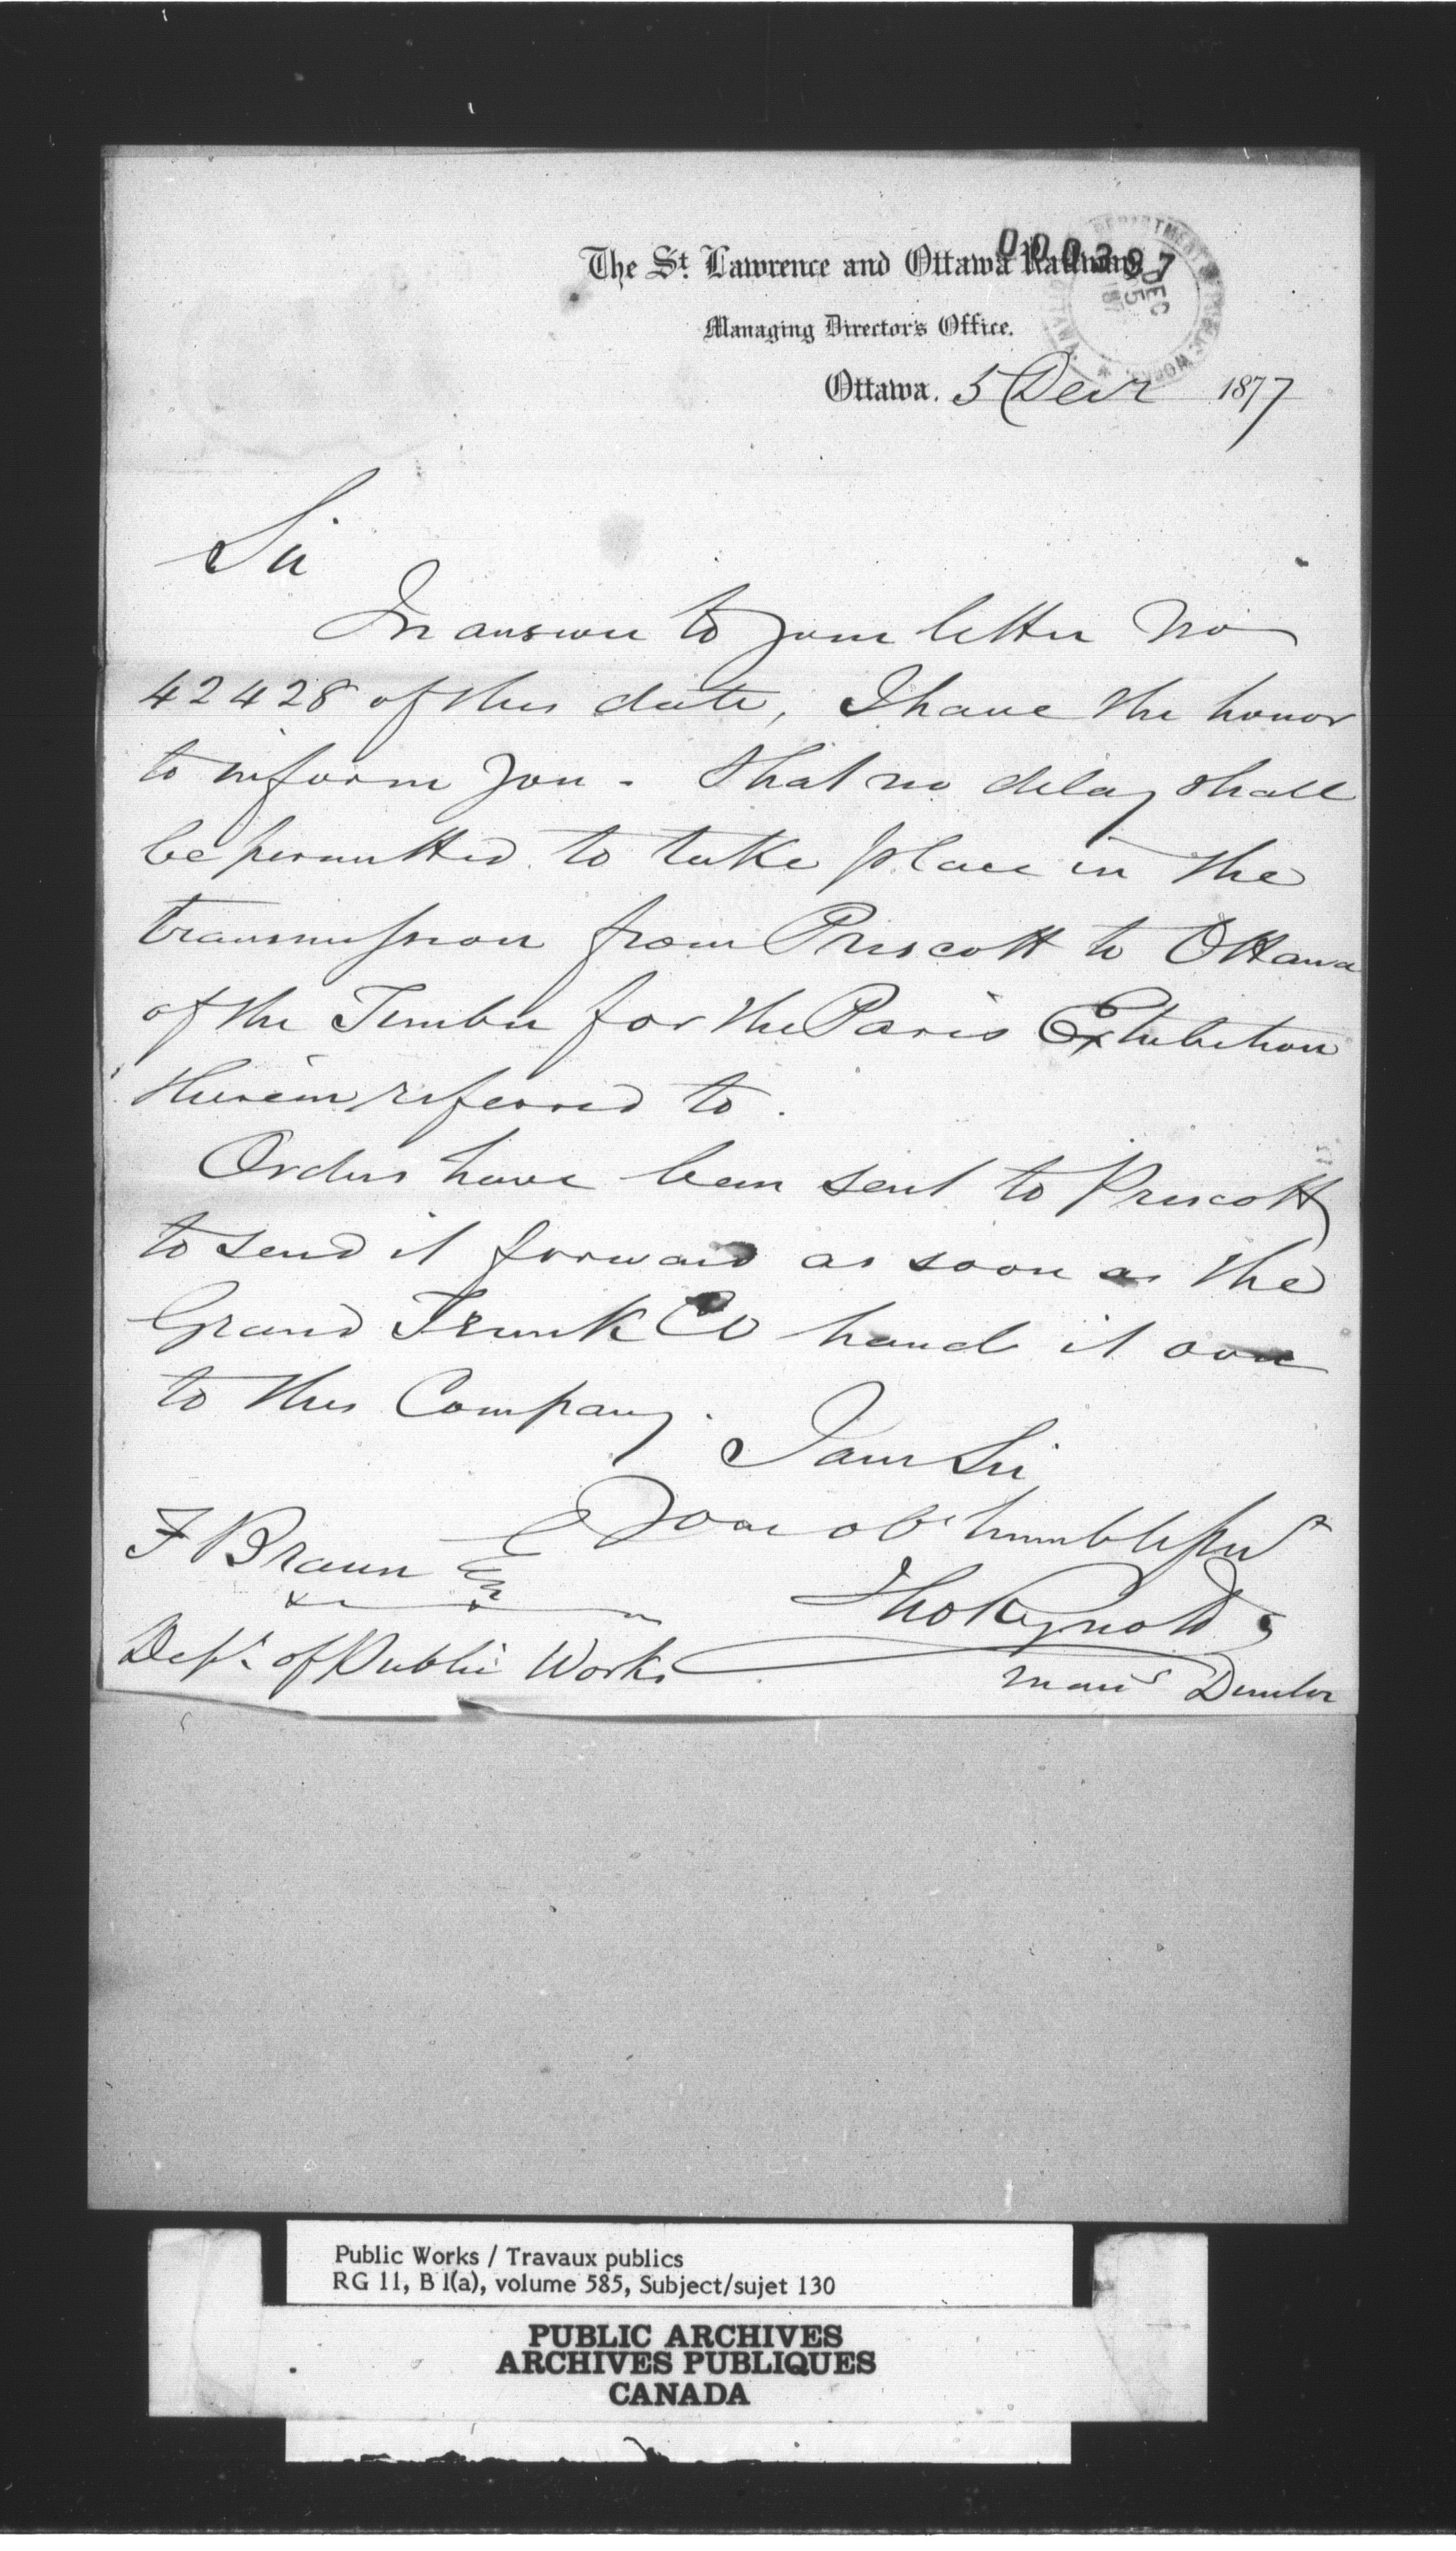 000397
The St. Lawrence and Ottawa Railway
DEPARTMENT OF PUBLIC WORKS * OTTAWA
DEC
5
187
Managing Director's Office.
Ottawa. 5 Decr 1877
Sir
In answer to your letter No
42428 of this date, I have the honor
to inform you - that no delay shall
be permitted to take place in the
transmission from Prescott to Ottawa
of the Timber for the Paris Exhibition
therein referred to.
Orders have been sent to Prescott
to send it forward as soon as the
Grand Trunk Co hand it over
to this Company.
I am Sir
Your obt humble servt
F Braun Esq
Thos Reynolds
Dept. of Public Works
Mang Director
Public Works / Travaux publics
RG 11, B 1(a), volume 585, Subject/sujet 130
PUBLIC ARCHIVES
ARCHIVES PUBLIQUES
CANADA